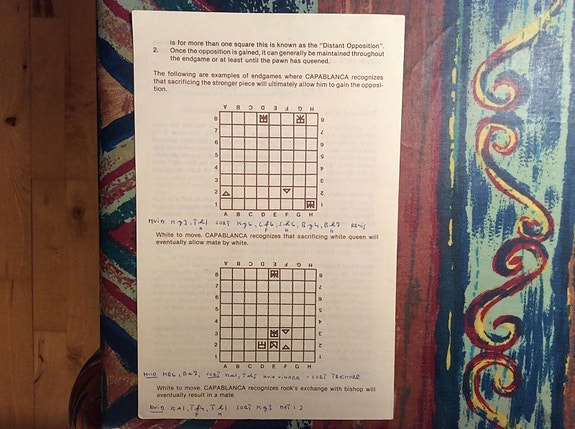 is for more than one square this is known as the "Distant Opposition".
2. Once the opposition is gained, it can generally be maintained throughout
the endgame or at least until the pawn has queened.
The following are examples of endgames where CAPABLANCA recognizes
that sacrificing the stronger piece will ultimately allow him to gain the opposi-
tion.
A B C D E F G H
8 8
7 7
6 6
5 5
4 4
3 3
2 2
1 1
A B C D E F G H
White to move. CAPABLANCA recognizes that sacrificing white queen will
eventually allow mate by white.
A B C D E F G H
8 8
7 7
6 6
5 5
4 4
3 3
2 2
1 1
A B C D E F G H
White to move. CAPABLANCA recognizes rook's exchange with bishop will
eventually result in a mate.